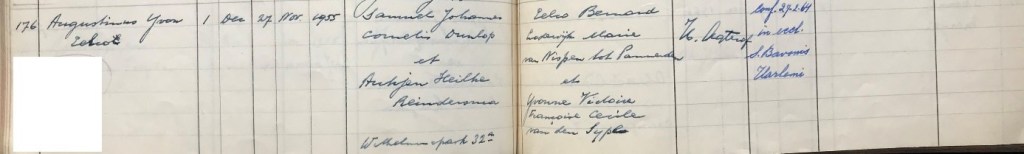 176 Augustinus Yvon 1 Dec 27 Nov. 1955 Samuel Johannes Eelco Bernard conf. 27.2.64
Eelco Cornelis Dunlop Lodewijk Marie H. in eccl.
et van Nispen tot Pannerden S. Bavonis
Ankjen Heilke et Harlemi
Reindersma Yvonne Victoire
Françoise Cécile
Wilhelminapark 32 van den